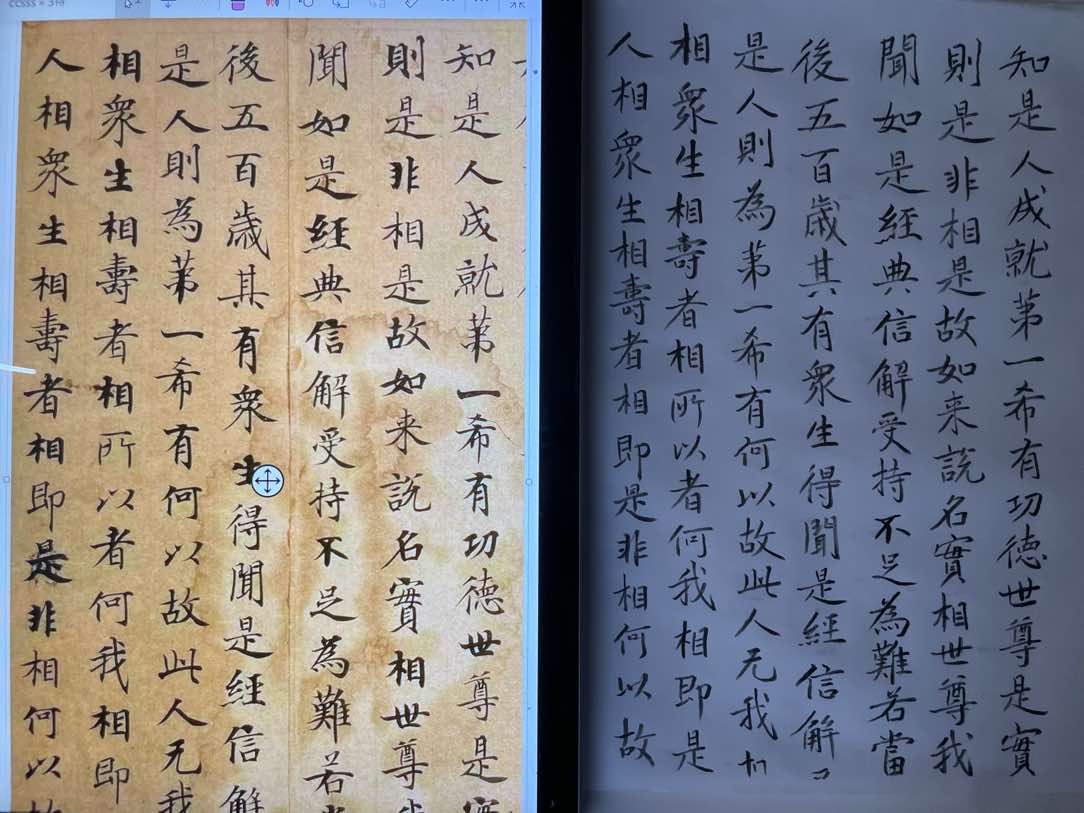 知是人成就第一希有功德世尊是實
則是非相是故如来說名實相世尊我
聞如是經典信解受持不足為難若
後五百歲其有衆生得聞是經信解
是人則為第一希有何以故此人无我
相衆生相壽者相所以者何我相即
人相衆生相壽者相即是非相何以故
知是人成就第一希有功德世尊是實
則是非相是故如来說名實相世尊我
聞如是經典信解受持不足為難若當
後五百歲其有衆生得聞是經信解
是人則為第一希有何以故此人无我
相衆生相壽者相所以者何我相即是
人相衆生相壽者相即是非相何以故